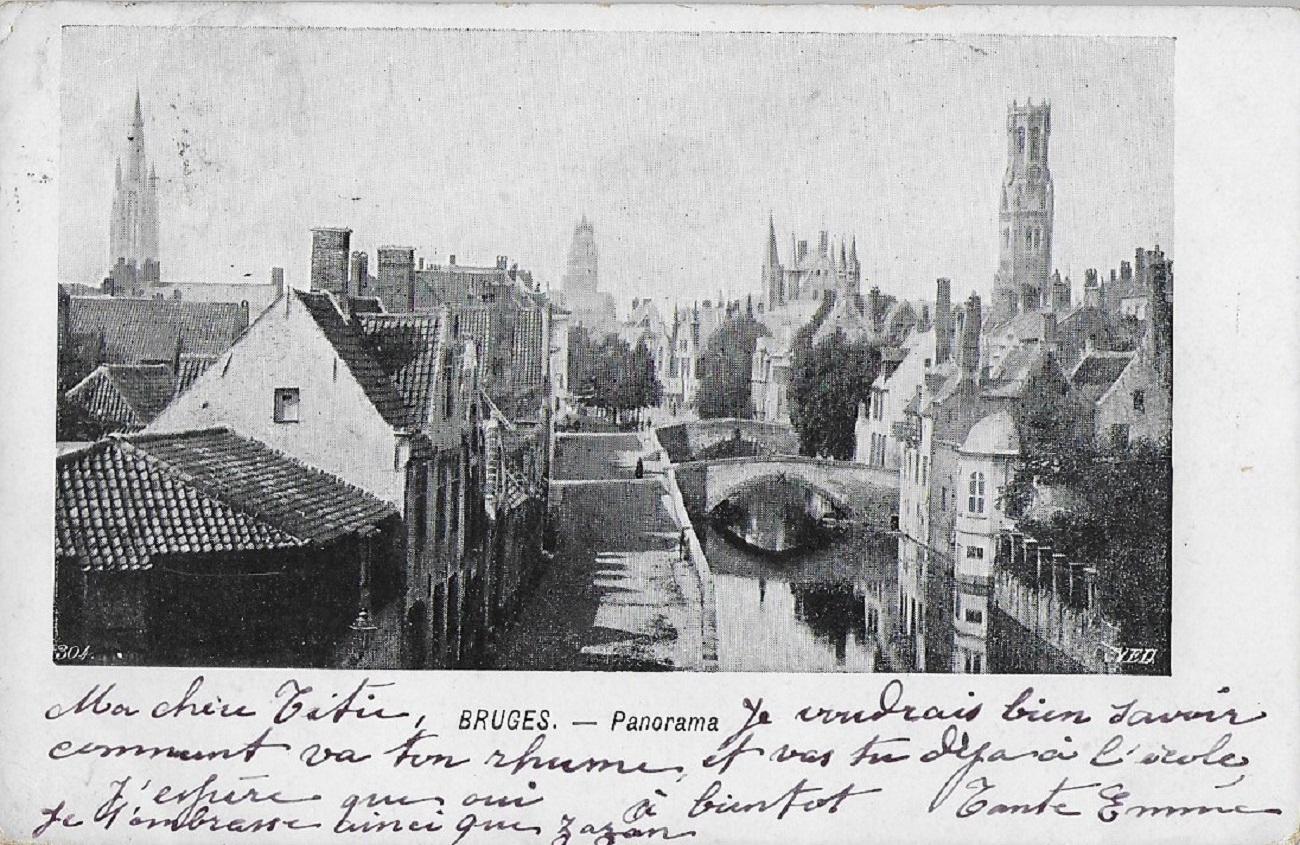 304.
V.E.D.
Ma chère Titie, BRUGES. — Panorama Je voudrais bien savoir
comment va ton rhume, et vas tu déja à l'école,
J'espère que oui à bientot Tante Emma
Je t'embrasse ainci que zazan